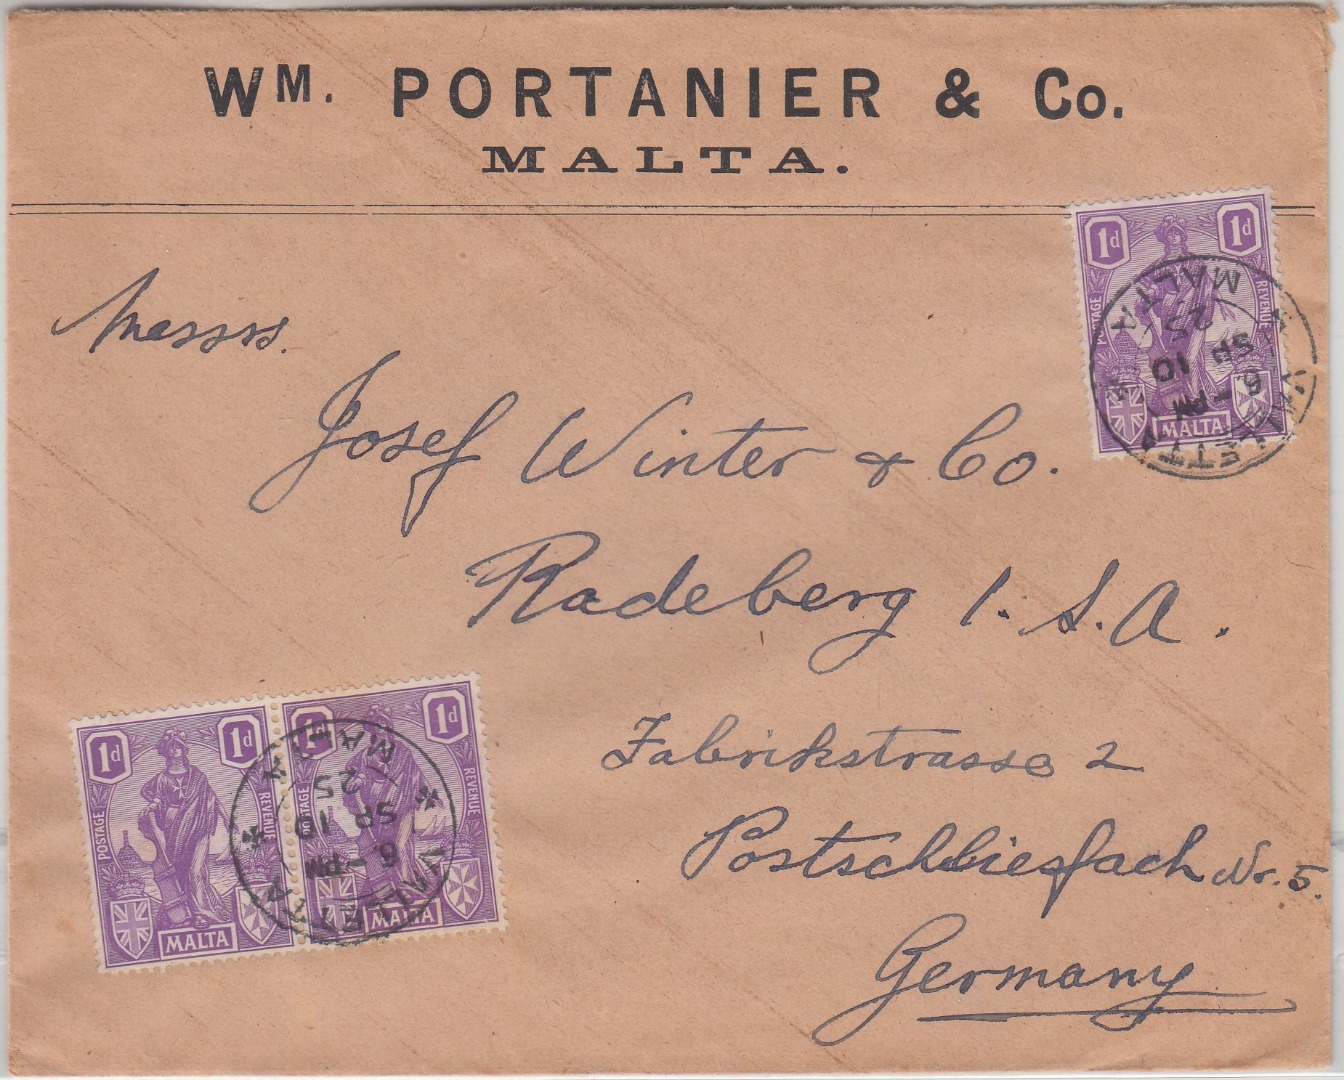 WM. PORTANIER & Co.
MALTA.
1d 1d
POSTAGE
REVENUE
MALTA
VALLETTA
6 - PM
SP 10
25
MALTA
Messrs.
Josef Winter & Co.
Radeberg i. S. A.
Fabrikstrasse 2
Postschliesfach Nr. 5.
Germany
1d 1d
POSTAGE
REVENUE
MALTA
1d 1d
POSTAGE
REVENUE
MALTA
VALLETTA
6 - PM
SP 10
25
MALTA